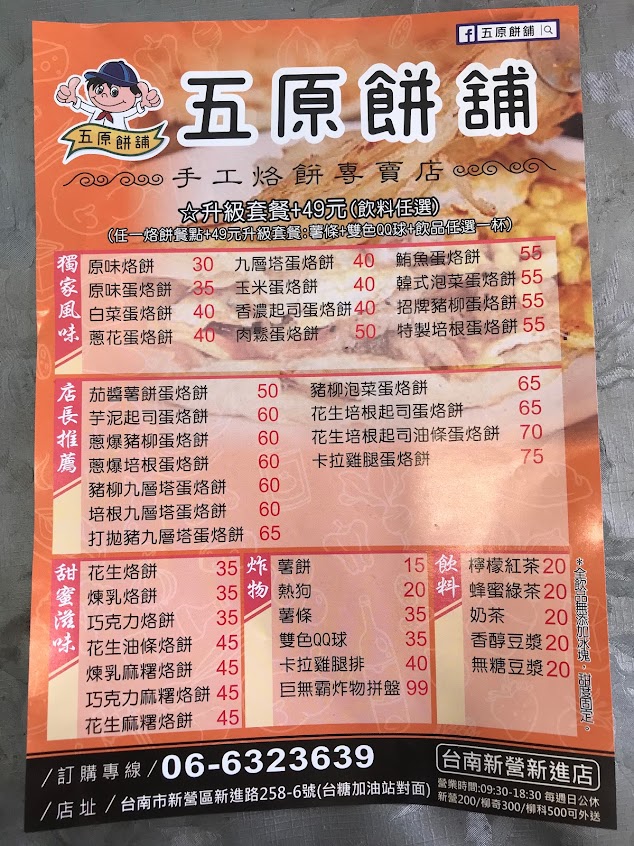 五原餅舖
五原餅舖
五原餅舖
手工烙餅專賣店
☆升級套餐+49元(飲料任選)
(任一烙餅餐點+49元升級套餐:薯條+雙色QQ球+飲品任選一杯)
獨家風味
原味烙餅 30
原味蛋烙餅 35
白菜蛋烙餅 40
蔥花蛋烙餅 40
九層塔蛋烙餅 40
玉米蛋烙餅 40
香濃起司蛋烙餅 40
肉鬆蛋烙餅 50
鮪魚蛋烙餅 55
韓式泡菜蛋烙餅 55
招牌豬柳蛋烙餅 55
特製培根蛋烙餅 55
店長推薦
茄醬薯餅蛋烙餅 50
芋泥起司蛋烙餅 60
蔥爆豬柳蛋烙餅 60
蔥爆培根蛋烙餅 60
豬柳九層塔蛋烙餅 60
培根九層塔蛋烙餅 60
打拋豬九層塔蛋烙餅 65
豬柳泡菜蛋烙餅 65
花生培根起司蛋烙餅 65
花生培根起司油條蛋烙餅 70
卡拉雞腿蛋烙餅 75
甜蜜滋味
花生烙餅 35
煉乳烙餅 35
巧克力烙餅 35
花生油條烙餅 45
煉乳麻糬烙餅 45
巧克力麻糬烙餅 45
花生麻糬烙餅 45
炸物
薯餅 15
熱狗 20
薯條 35
雙色QQ球 35
卡拉雞腿排 40
巨無霸炸物拼盤 99
飲料
檸檬紅茶 20
蜂蜜綠茶 20
奶茶 20
香醇豆漿 20
無糖豆漿 20
*全飲品無添加冰塊，甜度固定。
/訂購專線/ 06-6323639
/店址/ 台南市新營區新進路258-6號(台糖加油站對面)
台南新營新進店
營業時間:09:30-18:30 每週日公休
新營200/柳奇300/柳科500可外送